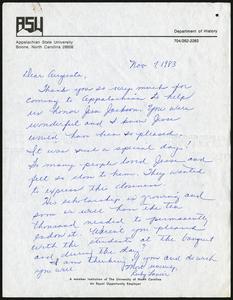 ASU
Appalachian State University
Boone, North Carolina 28608
Department of History
704/262-2282
Nov. 7, 1983
Dear Augusta,
Thank you so very much for
coming to Appalachian to help
us honor Jim Jackson. You were
wonderful and I know Jim
would have been so pleased.
It was such a special day!
So many people loved Jim and
felt so close to him. They wanted
to express the closeness.
His scholarship is growing and
soon we will have the ten
thousand needed to permanently
endow it. Weren't you pleased
with the students at the banquet
and during the day?
I am thinking if you and Dearick
you were
Most sincerely,
Ruby
A member institution of The University of North Carolina
An Equal Opportunity Employer